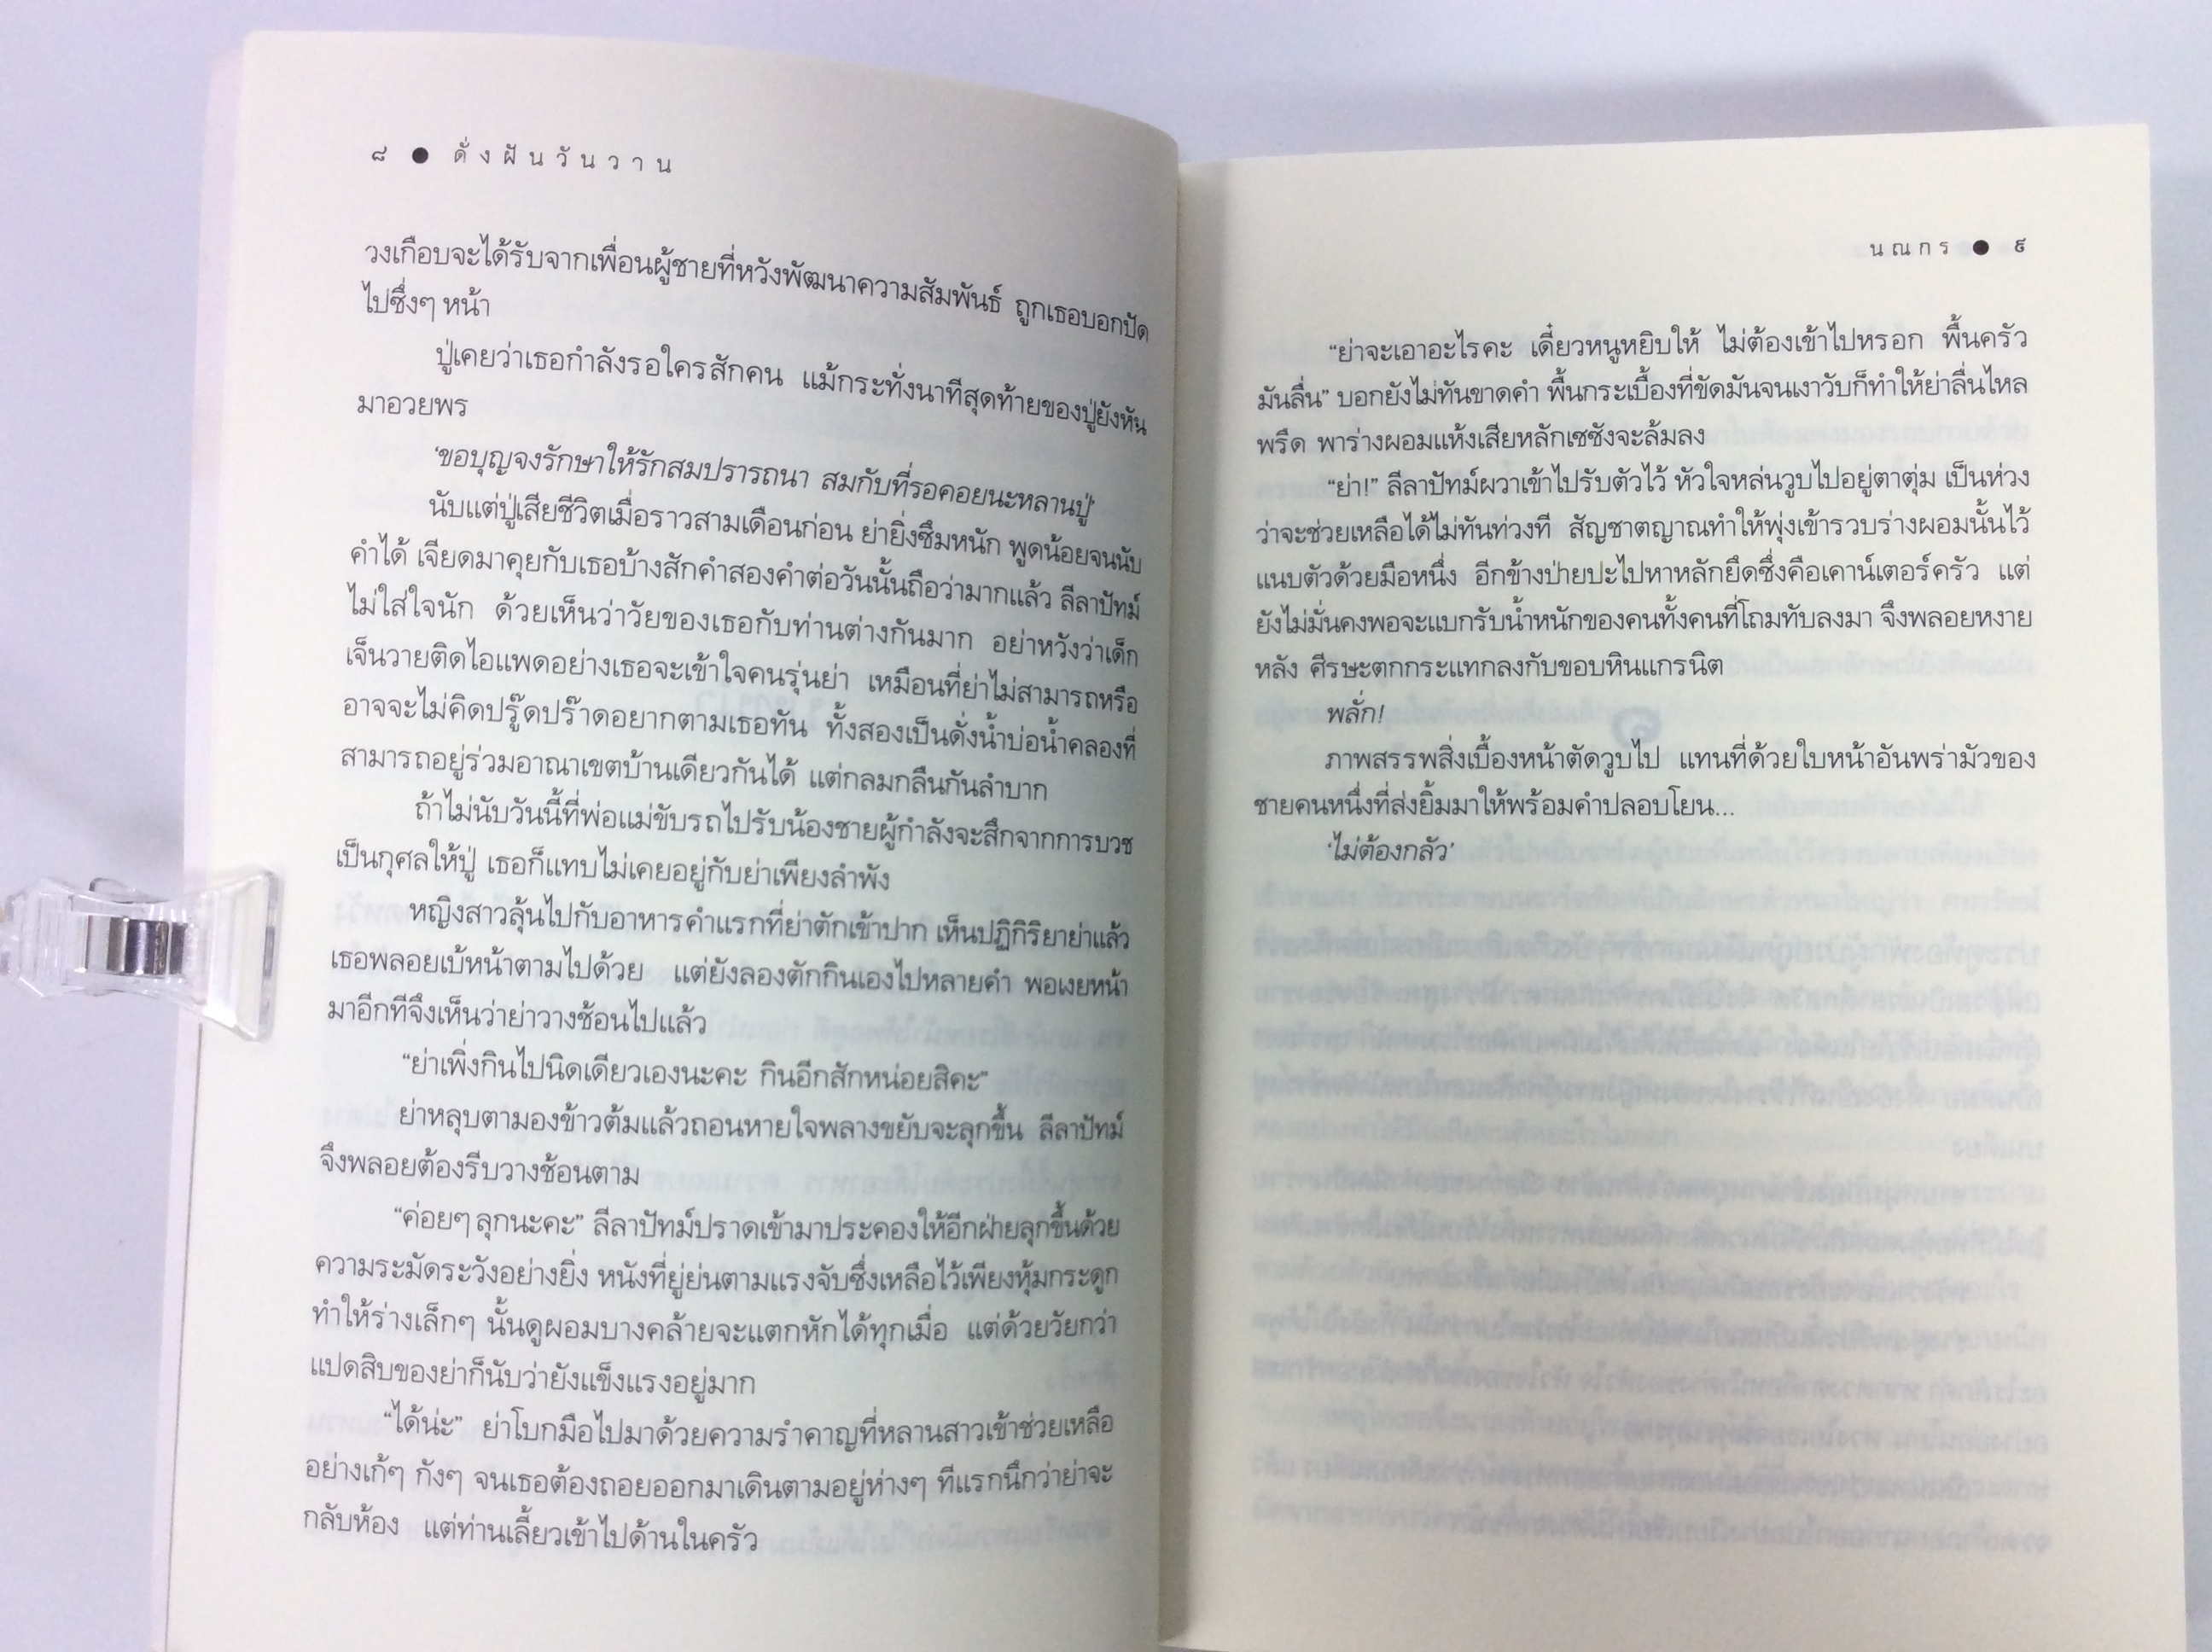 ๘ ● ดั่งฝันวันวาน
วงเกือบจะได้รับจากเพื่อนผู้ชายที่หวังพัฒนาความสัมพันธ์ ถูกเธอบอกปัด
ไปซึ่งๆ หน้า
ปู่เคยว่าเธอกำลังรอใครสักคน แม้กระทั่งนาทีสุดท้ายของปู่ยังหัน
มาอวยพร
‘ขอบุญจงรักษาให้รักสมปรารถนา สมกับที่รอคอยนะหลานปู่’
นับแต่ปู่เสียชีวิตเมื่อราวสามเดือนก่อน ย่ายิ่งซึมหนัก พูดน้อยจนนับ
คำได้ เจียดมาคุยกับเธอบ้างสักคำสองคำต่อวันนั้นถือว่ามากแล้ว ลีลาปัทม์
ไม่ใส่ใจนัก ด้วยเห็นว่าวัยของเธอกับท่านต่างกันมาก อย่าหวังว่าเด็ก
เจ็นวายติดไอแพดอย่างเธอจะเข้าใจคนรุ่นย่า เหมือนที่ย่าไม่สามารถหรือ
อาจจะไม่คิดปรู๊ดปร๊าดอยากตามเธอทัน ทั้งสองเป็นดั่งน้ำบ่อน้ำคลองที่
สามารถอยู่ร่วมอาณาเขตบ้านเดียวกันได้ แต่กลมกลืนกันลำบาก
ถ้าไม่นับวันนี้ที่พ่อแม่ขับรถไปรับน้องชายผู้กำลังจะสึกจากการบวช
เป็นกุศลให้ปู่ เธอก็แทบไม่เคยอยู่กับย่าเพียงลำพัง
หญิงสาวลุ้นไปกับอาหารคำแรกที่ย่าตักเข้าปาก เห็นปฏิกิริยาย่าแล้ว
เธอพลอยเบ้หน้าตามไปด้วย แต่ยังลองตักกินเองไปหลายคำ พอเงยหน้า
มาอีกทีจึงเห็นว่าย่าวางช้อนไปแล้ว
“ย่าเพิ่งกินไปนิดเดียวเองนะคะ กินอีกสักหน่อยสิคะ”
ย่าหลุบตามองข้าวต้มแล้วถอนหายใจพลางขยับจะลุกขึ้น ลีลาปัทม์
จึงพลอยต้องรีบวางช้อนตาม
“ค่อยๆ ลุกนะคะ” ลีลาปัทม์ปราดเข้ามาประคองให้อีกฝ่ายลุกขึ้นด้วย
ความระมัดระวังอย่างยิ่ง หนังที่ยู่ย่นตามแรงจับซึ่งเหลือไว้เพียงหุ้มกระดูก
ทำให้ร่างเล็กๆ นั้นดูผอมบางคล้ายจะแตกหักได้ทุกเมื่อ แต่ด้วยวัยกว่า
แปดสิบของย่าก็นับว่ายังแข็งแรงอยู่มาก
“ได้น่ะ” ย่าโบกมือไปมาด้วยความรำคาญที่หลานสาวเข้าช่วยเหลือ
อย่างเก้ๆ กังๆ จนเธอต้องถอยออกมาเดินตามอยู่ห่างๆ ทีแรกนึกว่าย่าจะ
กลับห้อง แต่ท่านเลี้ยวเข้าไปด้านในครัว
นณกร ● ๙
“ย่าจะเอาอะไรคะ เดี๋ยวหนูหยิบให้ ไม่ต้องเข้าไปหรอก พื้นครัว
มันลื่น” บอกยังไม่ทันขาดคำ พื้นกระเบื้องที่ขัดมันจนเงาวับก็ทำให้ย่าลื่นไหล
พรืด พาร่างผอมแห้งเสียหลักเซซังจะล้มลง
“ย่า!” ลีลาปัทม์ผวาเข้าไปรับตัวไว้ หัวใจหล่นวูบไปอยู่ตาตุ่ม เป็นห่วง
ว่าจะช่วยเหลือได้ไม่ทันท่วงที สัญชาตญาณทำให้พุ่งเข้ารวบร่างผอมนั้นไว้
แนบตัวด้วยมือหนึ่ง อีกข้างป่ายปะไปหาหลักยึดซึ่งคือเคาน์เตอร์ครัว แต่
ยังไม่มั่นคงพอจะแบกรับน้ำหนักของคนทั้งคนที่โถมทับลงมา จึงพลอยหงาย
หลัง ศีรษะตกกระแทกลงกับขอบหินแกรนิต
พลั่ก!
ภาพสรรพสิ่งเบื้องหน้าตัดวูบไป แทนที่ด้วยใบหน้าอันพร่ามัวของ
ชายคนหนึ่งที่ส่งยิ้มมาให้พร้อมคำปลอบโยน...
‘ไม่ต้องกลัว’